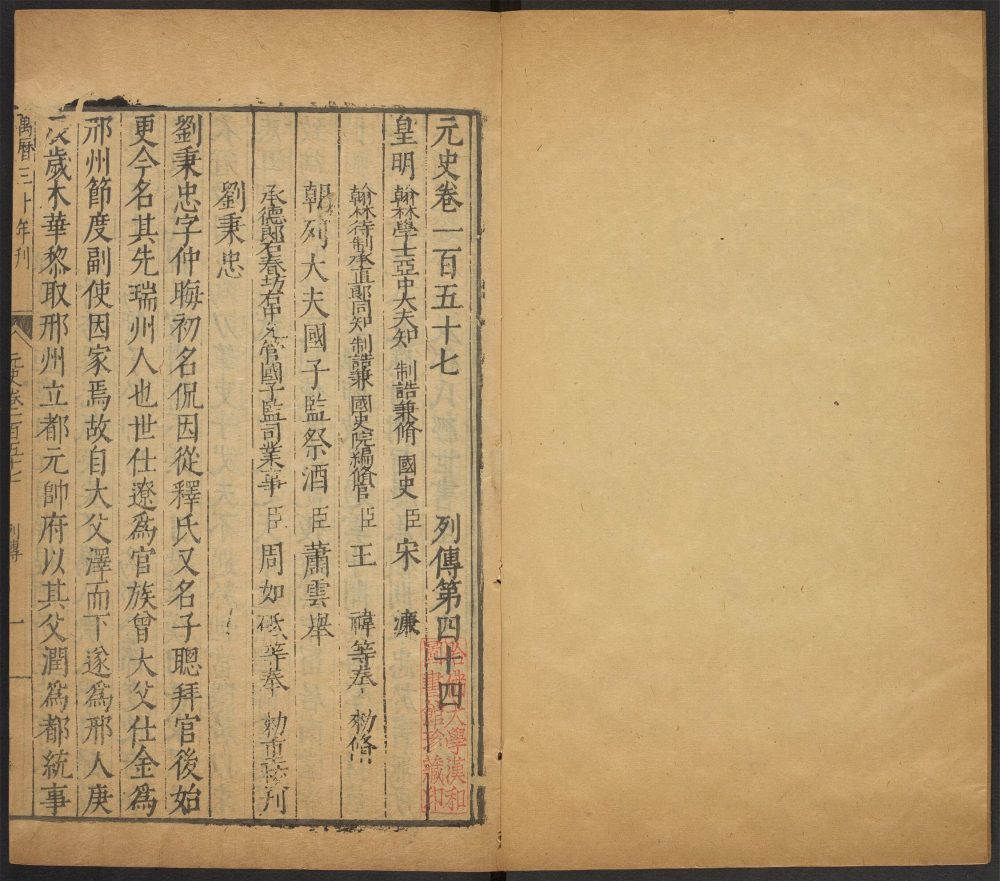 元史卷一百五十七　列傳第四十四
皇明　翰林學士亞中大夫知　制誥兼脩　國史　臣　宋　濂
翰林待制承直郎同知　制誥兼　國史院編脩官　臣　王　禕等奉　勑脩
朝列大夫國子監祭酒　臣　蕭雲舉
承德郎右春坊右中允管國子監司業事　臣　周如砥等奉　勑重刊
劉秉忠
劉秉忠字仲晦初名侃因從釋氏又名子聰拜官後始
更今名其先瑞州人也世仕遼爲官族曾大父仕金爲
邢州節度副使因家焉故自大父澤而下遂爲邢人庚
歲木華黎取邢州立都元帥府以其父潤爲都統事
萬曆三十年刊
元史卷一百五十七
列傳
一
哈佛大學漢和
圖書館珍藏印